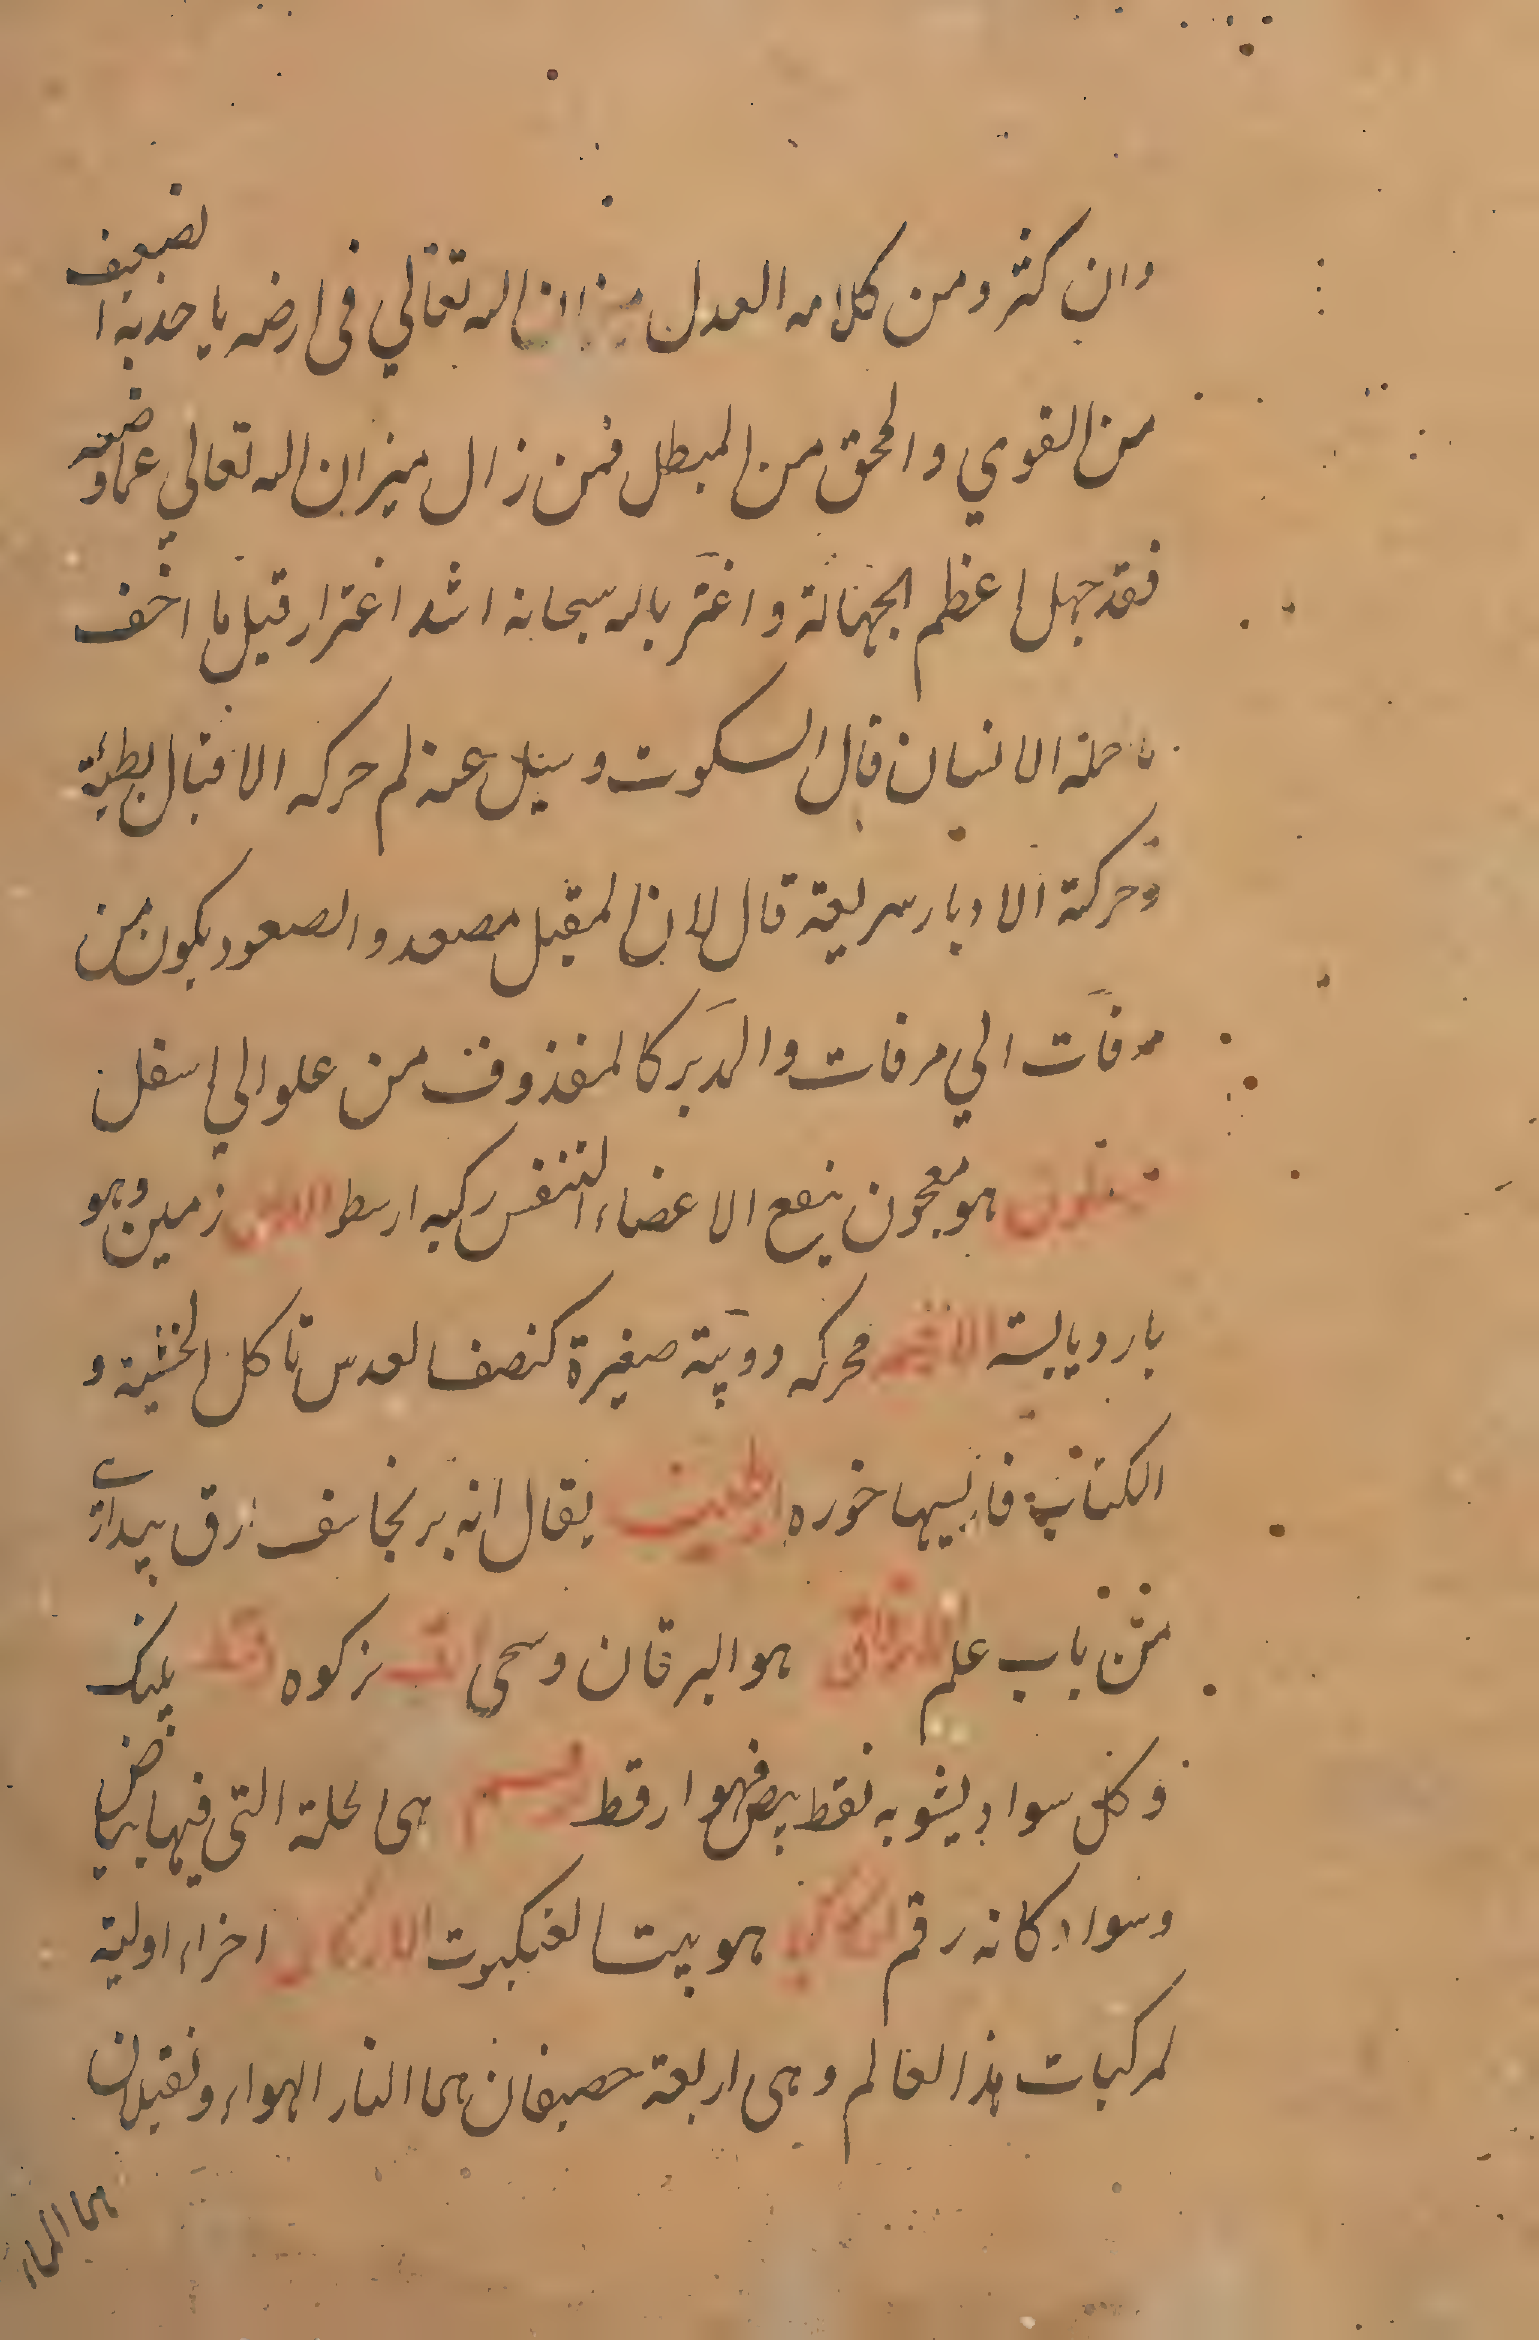 وان كثر ومن كلامه العدل ميزان الله تعالي في ارضه ياخذ به الضعيف
من القوي والمحق من المبطل فمن زال ميزان الله تعالي عما وضعه
فقد جهل اعظم الجهالة واغتر بالله سبحانه اشد اغترار قيل ما اخف
ما حمله الانسان قال السكوت وسيل عنه لم حركه الاقبال بطيئة
وحركة الادبار سريعة قال لان المقبل مصعد والصعود يكون من
مرقات الي مرقات والمدبر كالمقذوف من علو الي اسفل
هو معجون ينفع الاعضاء التنفس ركبه ارسط الارض زمين وهو
بارد يابسة الارضه محركه دويبة صغيرة كنصف العدس تاكل الخشبة و
الكتاب فارسيها خوره يقال انه برنجاسف ارق بيداري
من باب علم الارقان هو اليرقان وسحي بزكوه ارقط پلنك
وكل سواد يشوبه نقط بيض فهو ارقط هي الحلة التي فيها بياض
وسواد كانه رقم هو بيت العنكبوت الاركان اجزاء اولية
لمركبات هذا العالم وهي اربعة خفيفان هما النار الهواء وثقيلان
هما الماء